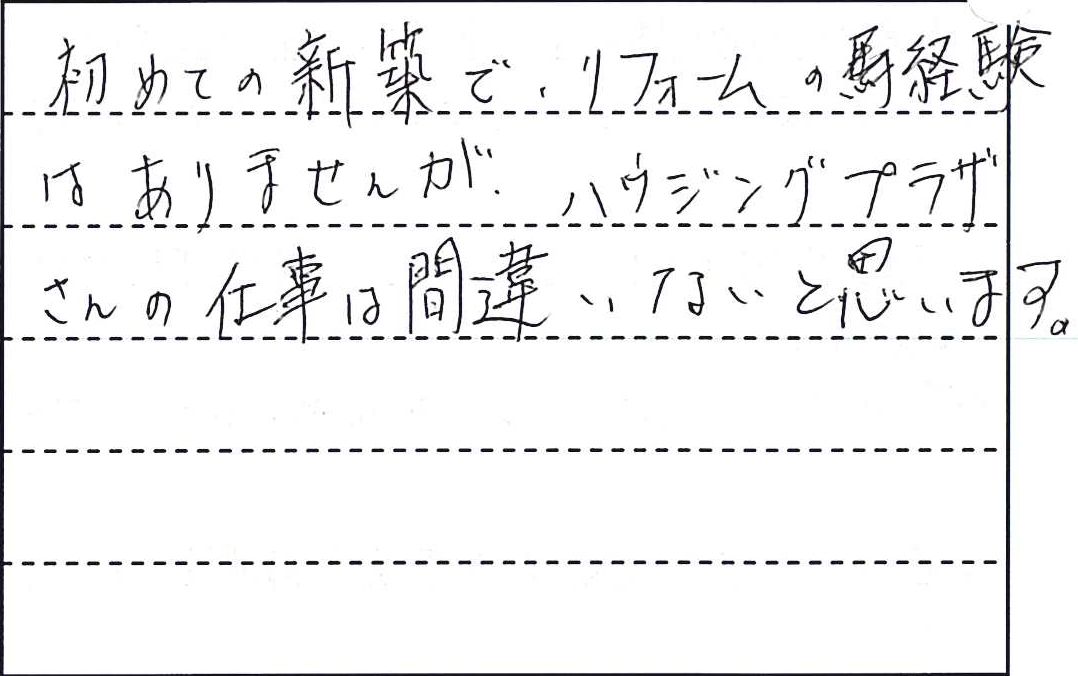 初めての新築で、リフォームの経験
はありませんが、ハウジングプラザ
さんの仕事は間違いないと思います。